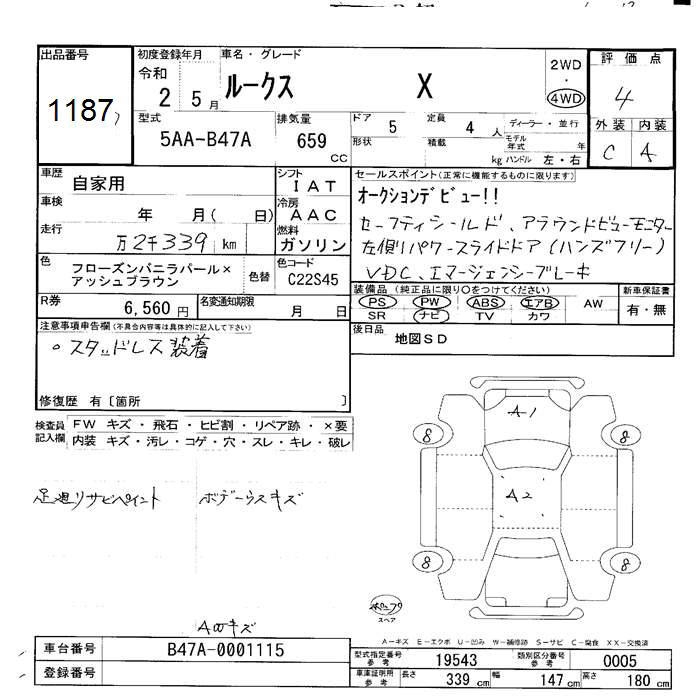 出品番号
1187
初度登録年月
令和 2 5月
車名・グレード
ルークス X
2WD
・
4WD
評価点
4
外装 内装
C A
型式
5AA-B47A
排気量
659 CC
ドア 5
形状
定員 4 人
積載 kg
ディーラー・並行
モデル年式 年
ハンドル 左・右
車歴 自家用
シフト IAT
車検 年 月( 日)
冷房 AAC
走行 万2千339 km
燃料 ガソリン
色
フローズンバニラパール×
アッシュブラウン
色替
色コード
C22S45
R券 6,560円
名変通知期限 月 日
セールスポイント(正常に機能するものに限ります)
オークションデビュー!!
セーフティシールド、アラウンドビューモニター
左側パワースライドドア(ハンズフリー)
VDC、エマージェンシーブレーキ
装備品(純正品に限り○をつけてください)
PS PW ABS エアB AW
SR ナビ TV カワ
新車保証書
有・無
後日品 地図SD
注意事項申告欄(不具合内容等は具体的に記入して下さい)
○スタッドレス装着
修復歴 有〔箇所 〕
検査員記入欄
FW キズ・飛石・ヒビ割・リペア跡・×要
内装 キズ・汚レ・コゲ・穴・スレ・キレ・破レ
足廻リサビペイント
ボデーウスキズ
A-1
A2
8 8
8 8
スペア
A-キズ E-エクボ U-凹み W-補修跡 S-サビ C-腐食 XX-交換済
車台番号 B47A-0001115
登録番号
型式指定番号 参考 19543
類別区分番号 参考 0005
車庫証明用 参考 長さ 339 cm 幅 147 cm 高さ 180 cm